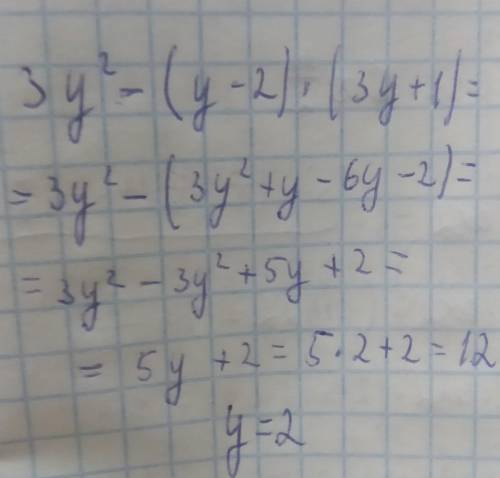 3y² - (y - 2) · (3y + 1) =
= 3y² - (3y² + y - 6y - 2) =
= 3y² - 3y² + 5y + 2 =
= 5y + 2 = 5 · 2 + 2 = 12
y = 2